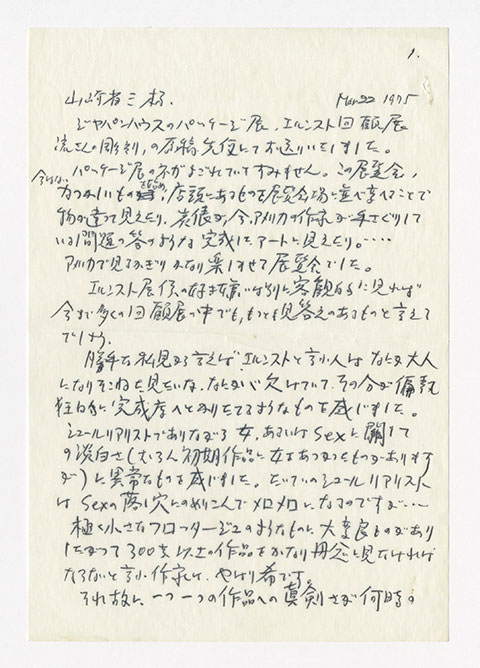 1.
山崎省三様. Mar 22 1975
ジャパンハウスのパッケージ展、エルンスト回顧展
流さんの彫刻、の原稿先便にてお送りいたしました。
パッケージ展のネガがよごれていてすみません。この展覧会、
なつかしいもの 店頭にあるものを展覧会場に並べ変ることで
物が違って見えたり、 俵が、今アメリカの作家が手さぐりして
いる問題の答のような完成したアートに見えたり。‥‥
アメリカで見るかぎりかなり楽しませて展覧会でした。
エルンスト展 僕の好き嫌いは別に客観的に見れば
今まで多くの回顧展の中でも、もっとも見答えのあるものと言えて
でしょう。
勝手な私見から言えばエルンストと言う人はなにか大人
になりそこねた見たいな、なにか欠けていて、その分が偏執
狂的に完成度へとかりたてるようなものを感じました。
シュールリアリストでありながら女、あるいはSexに関して
の淡白さ(もちろん初期作品に女をあつかったものがあります
が)に異常なものを感じました。たいていのシュールリアリスト
はSexの落し穴にのめりこんでメロメロになるのですが‥‥
極く小さなフロッタージュのようなものに大変良いものがあり
したがって300点以上の作品をかなり丹念に見なければ
ならないと言う作家は、やはり希です。
それ故に一つ一つの作品への真剣さが何時の